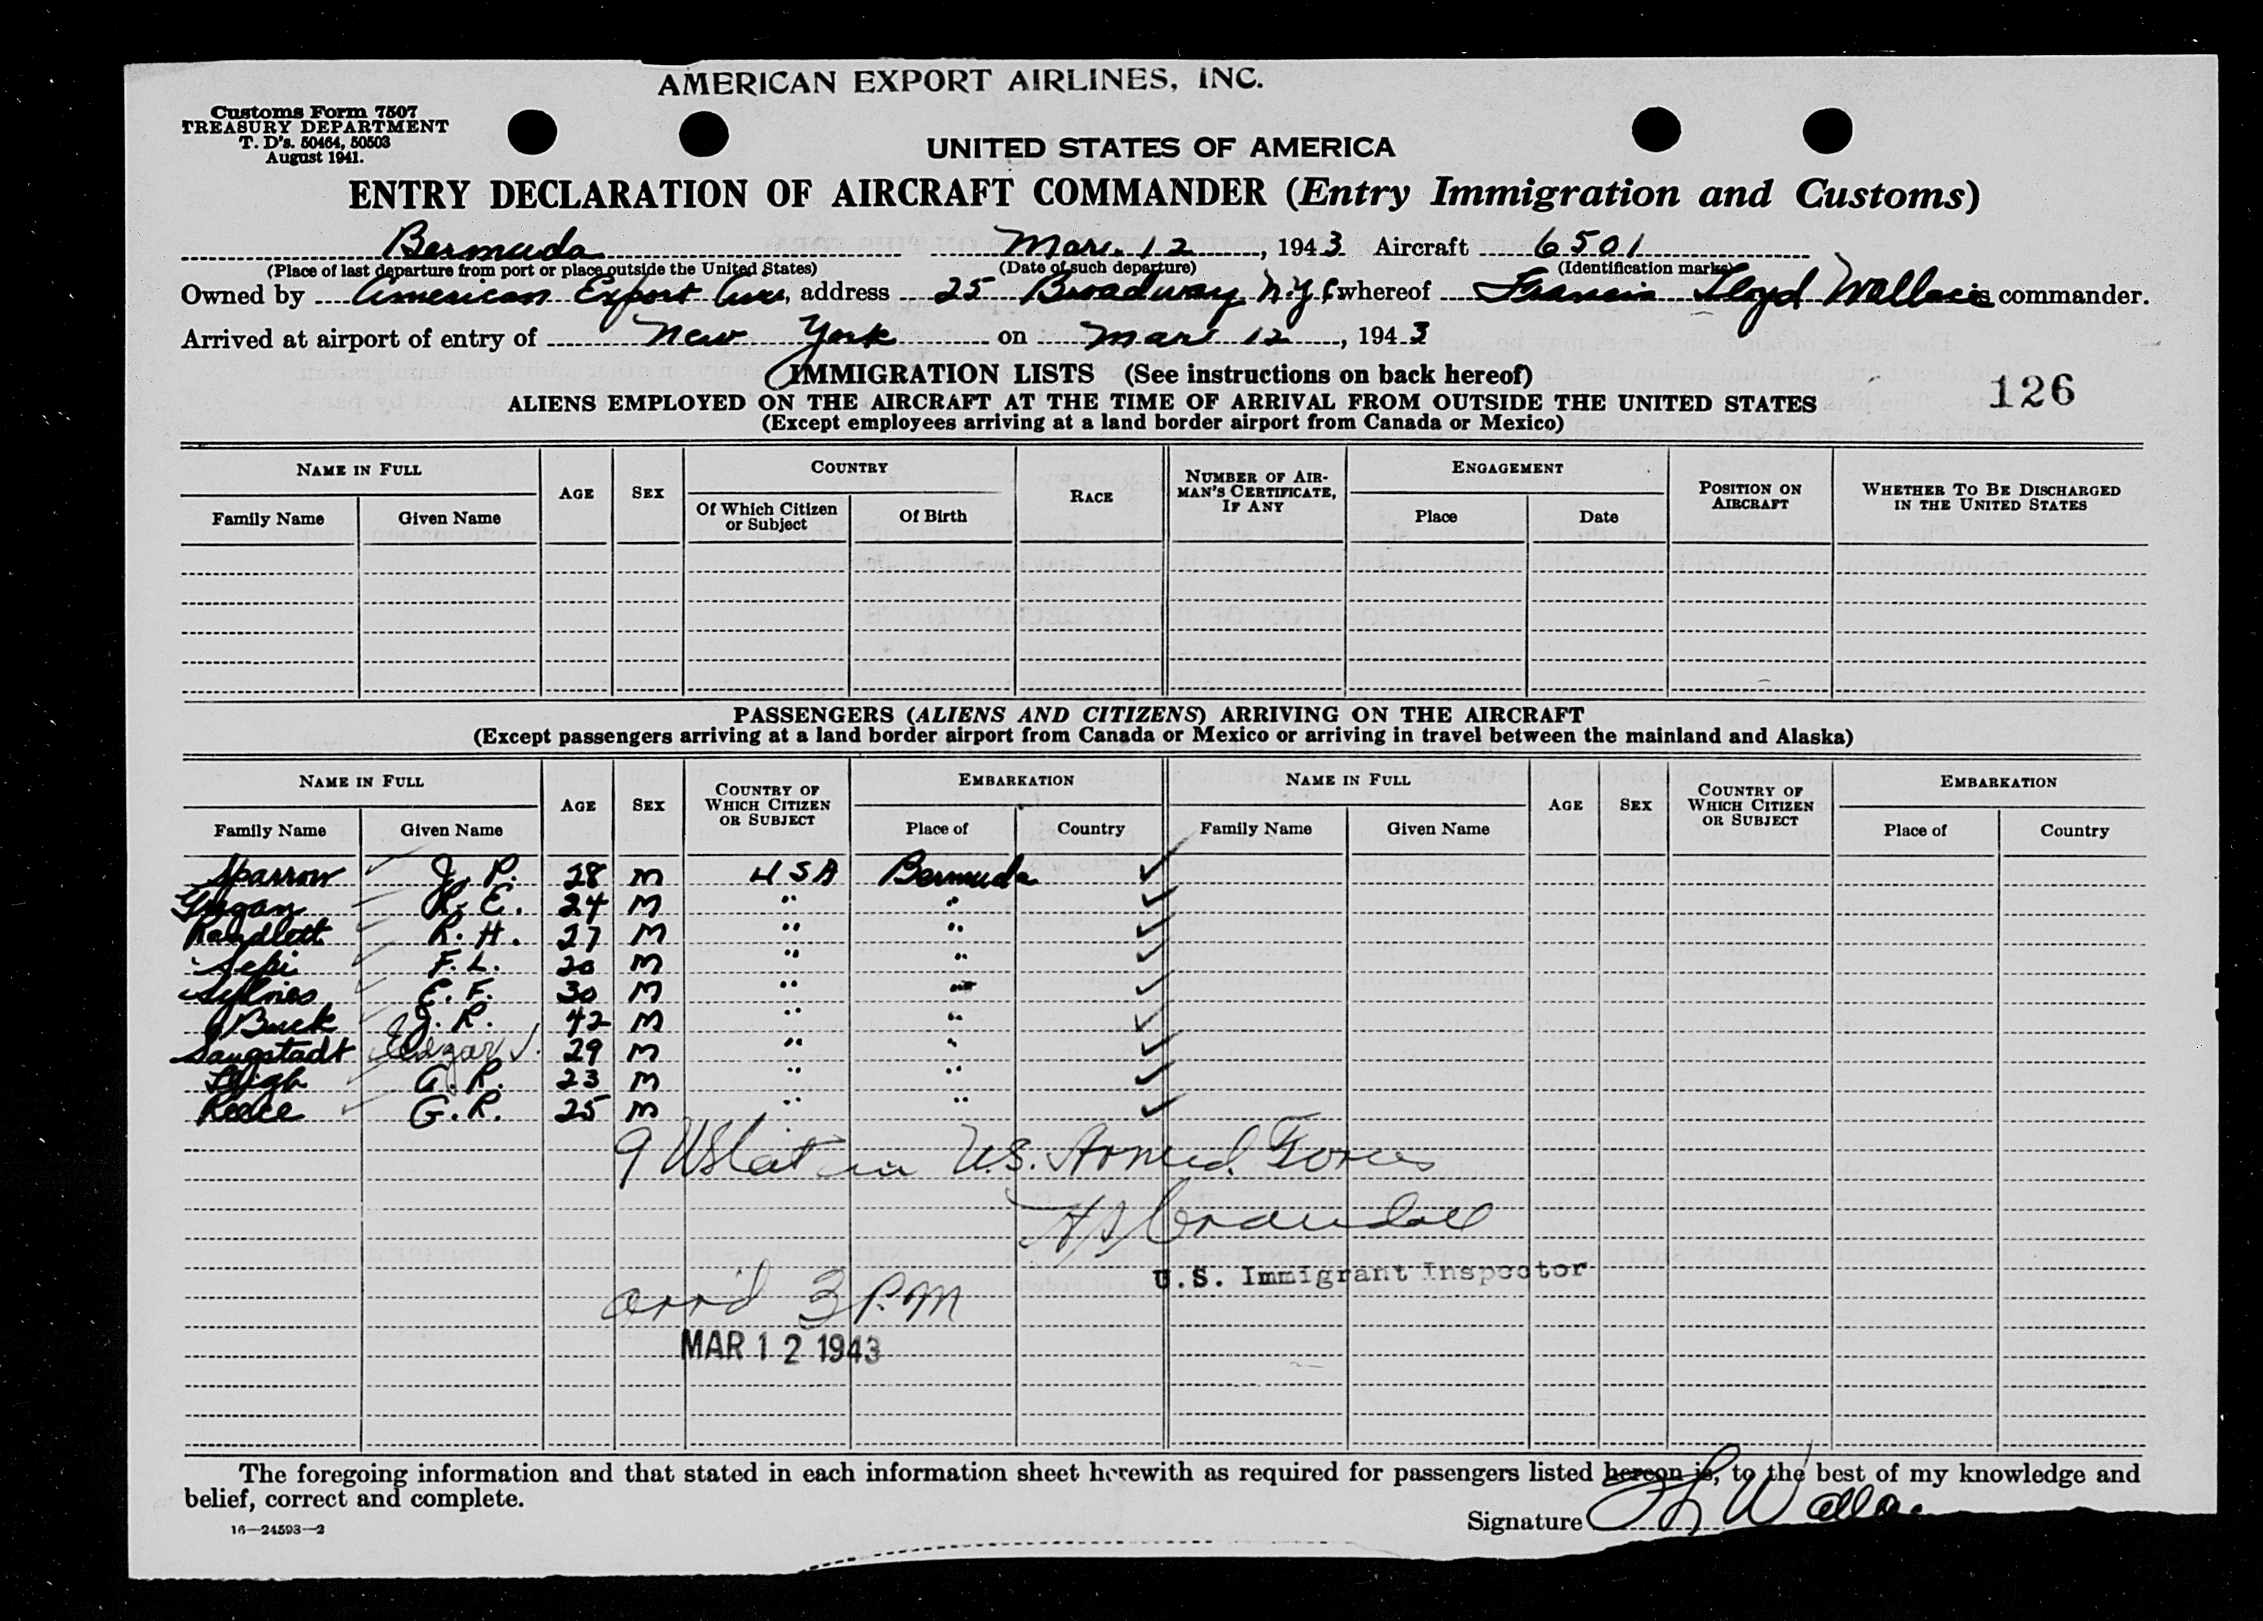 AMERICAN EXPORT AIRLINES, INC.
Customs Form 7507
TREASURY DEPARTMENT
T. D's. 50464, 50503
August 1941.
UNITED STATES OF AMERICA
ENTRY DECLARATION OF AIRCRAFT COMMANDER (Entry Immigration and Customs)
Bermuda Mar. 12, 1943 Aircraft 6501
(Place of last departure from port or place outside the United States) (Date of such departure) (Identification marks)
Owned by American Export, address 25 Broadway N.Y.C whereof Francis Lloyd Wallace is commander.
Arrived at airport of entry of New York on Mar 12, 1943
IMMIGRATION LISTS (See instructions on back hereof)
126
ALIENS EMPLOYED ON THE AIRCRAFT AT THE TIME OF ARRIVAL FROM OUTSIDE THE UNITED STATES
(Except employees arriving at a land border airport from Canada or Mexico)
NAME IN FULL AGE SEX COUNTRY RACE NUMBER OF AIRMAN'S CERTIFICATE, IF ANY ENGAGEMENT POSITION ON AIRCRAFT WHETHER TO BE DISCHARGED IN THE UNITED STATES
Family Name Given Name Of Which Citizen or Subject Of Birth Place Date
PASSENGERS (ALIENS AND CITIZENS) ARRIVING ON THE AIRCRAFT
(Except passengers arriving at a land border airport from Canada or Mexico or arriving in travel between the mainland and Alaska)
NAME IN FULL AGE SEX COUNTRY OF WHICH CITIZEN OR SUBJECT EMBARKATION NAME IN FULL AGE SEX COUNTRY OF WHICH CITIZEN OR SUBJECT EMBARKATION
Family Name Given Name Place of Country Family Name Given Name Place of Country
Sparrow J. P. 28 M USA Bermuda ✓
R. E. 24 M " " ✓
Randlett R. H. 27 M " " ✓
Sepi F. L. 20 M " " ✓
E. F. 30 M " " ✓
Buck J. R. 42 M " " ✓
Saugstadt Edgar J. 29 M " " ✓
Leigh A. R. 23 M " " ✓
Reace G. R. 25 M " " ✓
9 US Cit in U.S. Armed Forces
Crandall
U.S. Immigrant Inspector
arr'd 3 P.M
MAR 12 1943
The foregoing information and that stated in each information sheet herewith as required for passengers listed hereon is, to the best of my knowledge and
belief, correct and complete.
Signature F L Wallace
16—24593—2